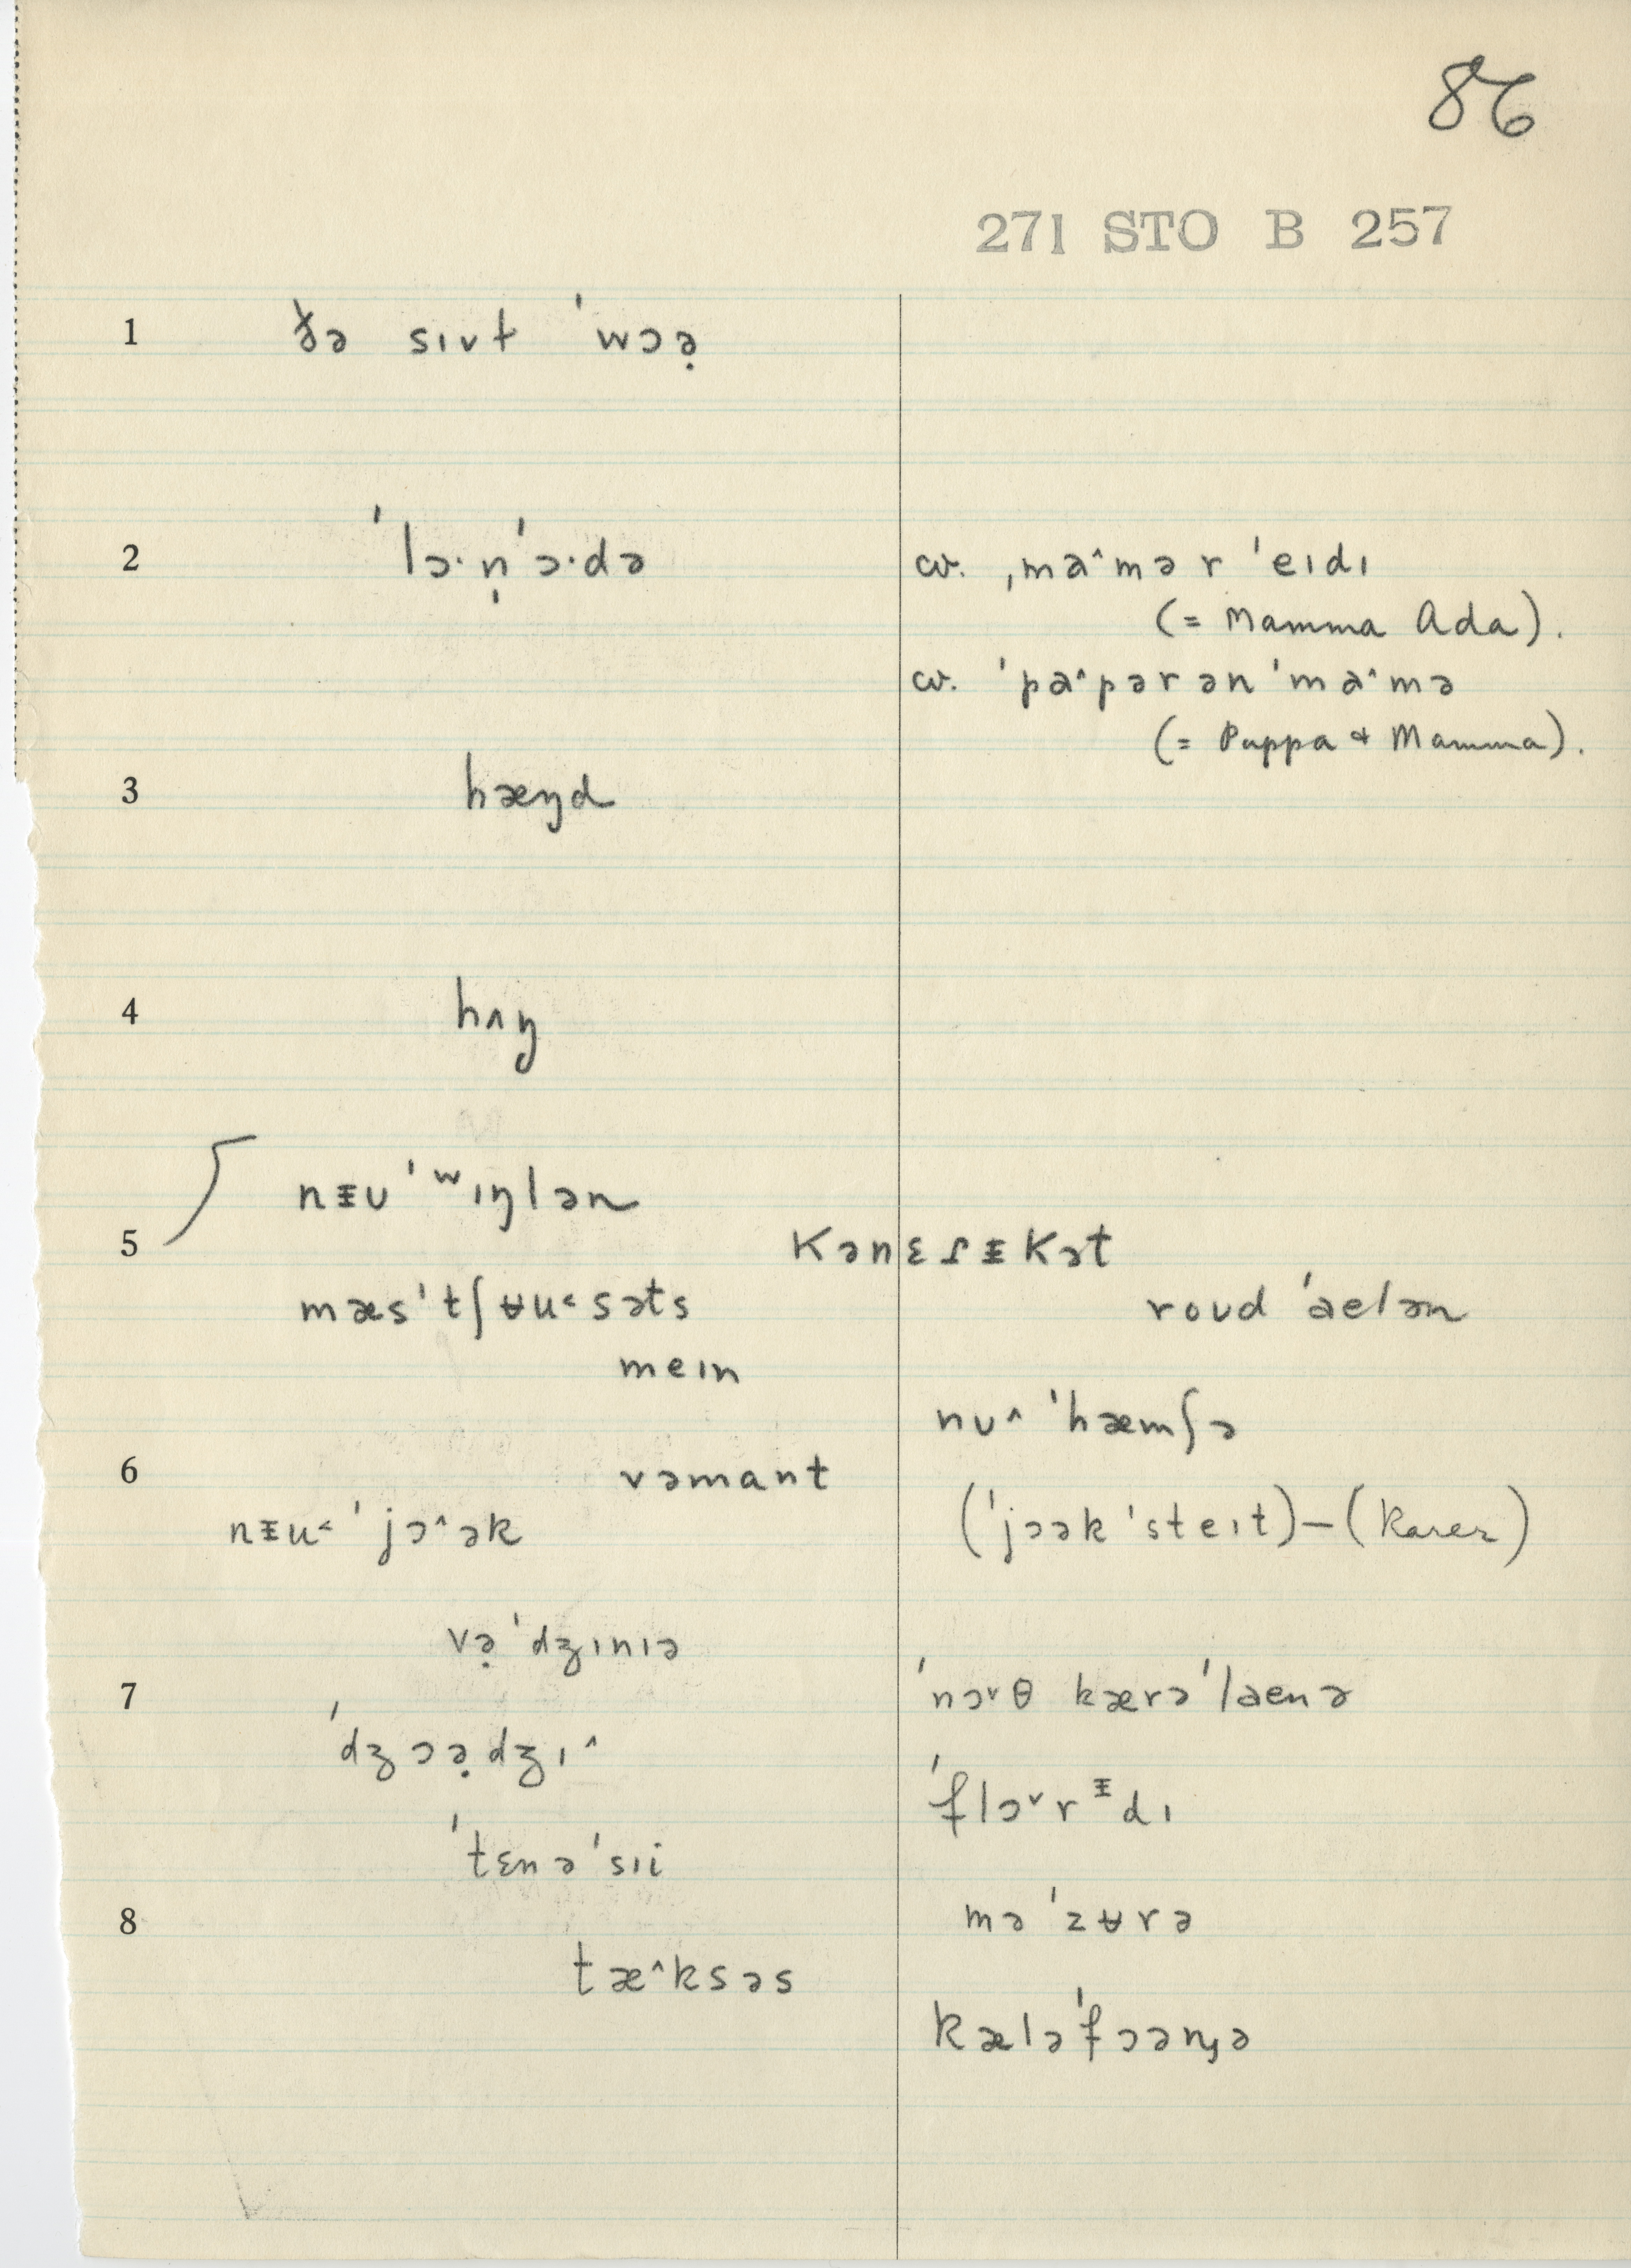 86
271 STO B 257
1 ðə sɪvɫ ˈwɔə̣
2 ˈlɔ·ṇˈɔ·də
cv. ˌma^mə r ˈeɪdɪ
(= Mamma Ada).
cv. ˈpa^pər ən ˈma^mə
(= Pappa & Mamma).
3 hæŋd
4 hʌŋ
nᵻʊˈʷɪŋlən
5 kənɛɾᵻkət
mæsˈtʃʉu˂səts
roʊd ˈaelən
meɪn
nʊ^ ˈhæmʃə
6 vəmant
nᵻu˂ ˈjɔ^ək
(ˈjɔək ˈsteɪt)—(rarer)
və̣ˈdʒɪnɪə
7 ˈnɔ˅θ kærəˈlaenə
ˈdʒɔə̣dʒɪ^
ˈflɔ˅rᵻdɪ
ˈtɛnəˈsɪi
8 məˈzʉrə
tæ^ksəs
kæləˈfɔənjə